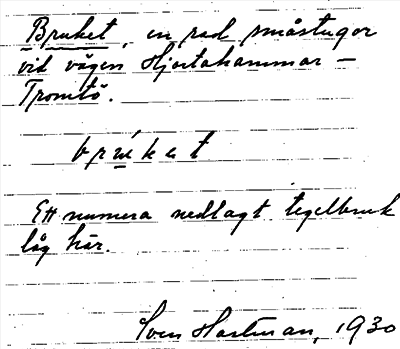 Bruket, en rad småstugor
vid vägen Hjortahammar –
Tromtö.
bru̍ket
Ett numera nedlagt tegelbruk
låg här.
Sven Hartman, 1930